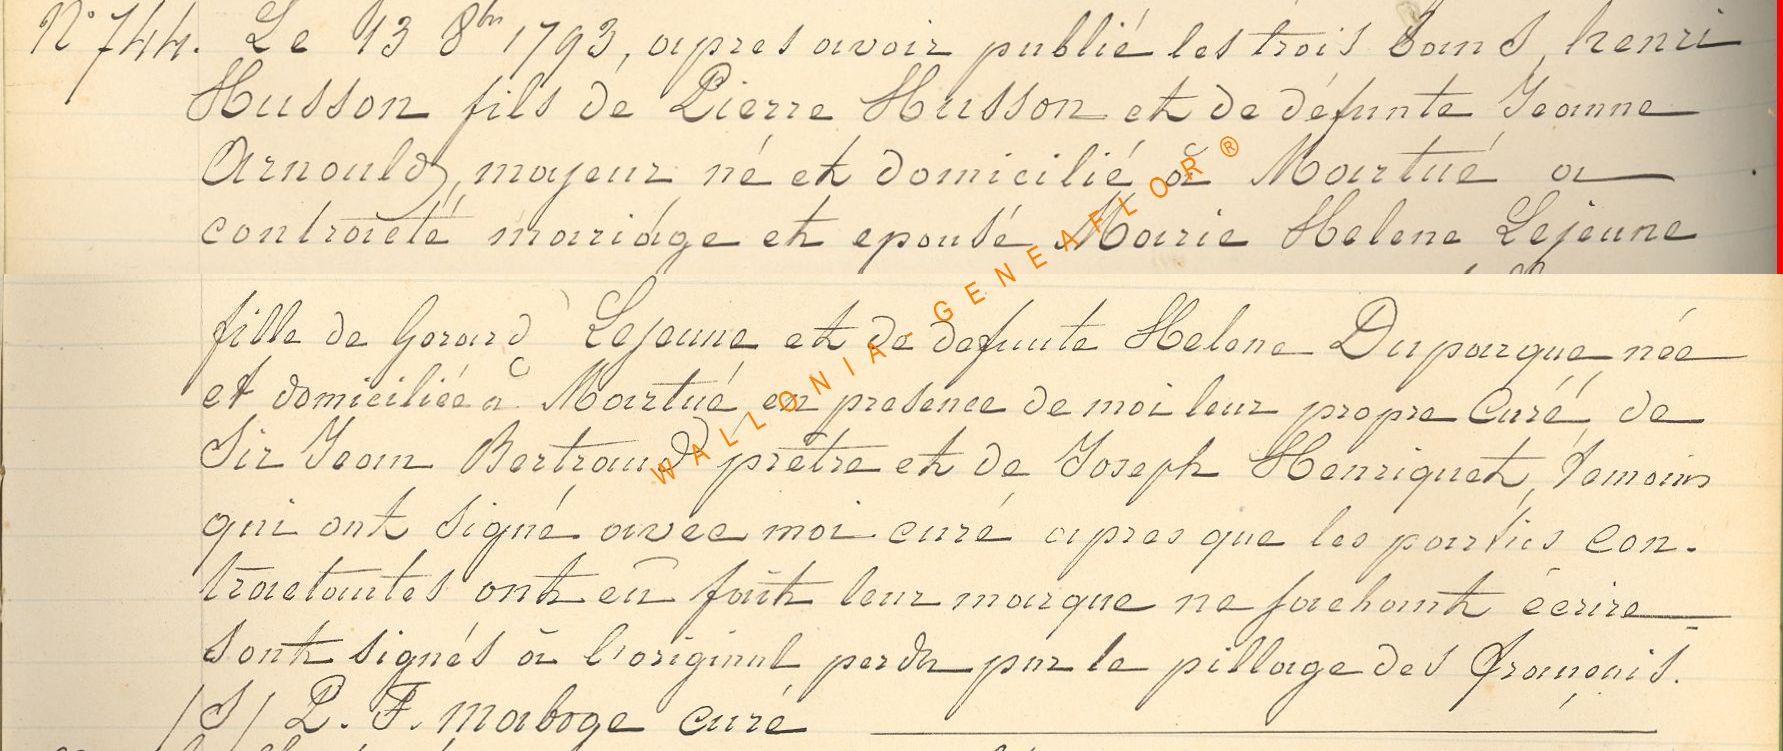 N° 744. Le 13 8bre 1793, apres avoir publié les trois bans, henri
Husson fils de Pierre Husson et de défunte Jeanne
Arnould, majeur né et domicilié à Martué a
contracté mariage et epousé Marie Helene Lejeune
fille de Gerard Lejeune et de defunte Helene Duparque née
et domiciliée à Martué en presence de moi leur propre Curé, de
Sir Jean Bertrand prêtre et de Joseph Henriquet, témoins
qui ont signé avec moi curé apres que les parties con-
tractantes ont eu fait leur marque ne sachant écrire
sont signés à l'original perdu par le pillage des françois.
/S/ P. F. Maboge curé
WALLONIA - GENEAFLOR ®